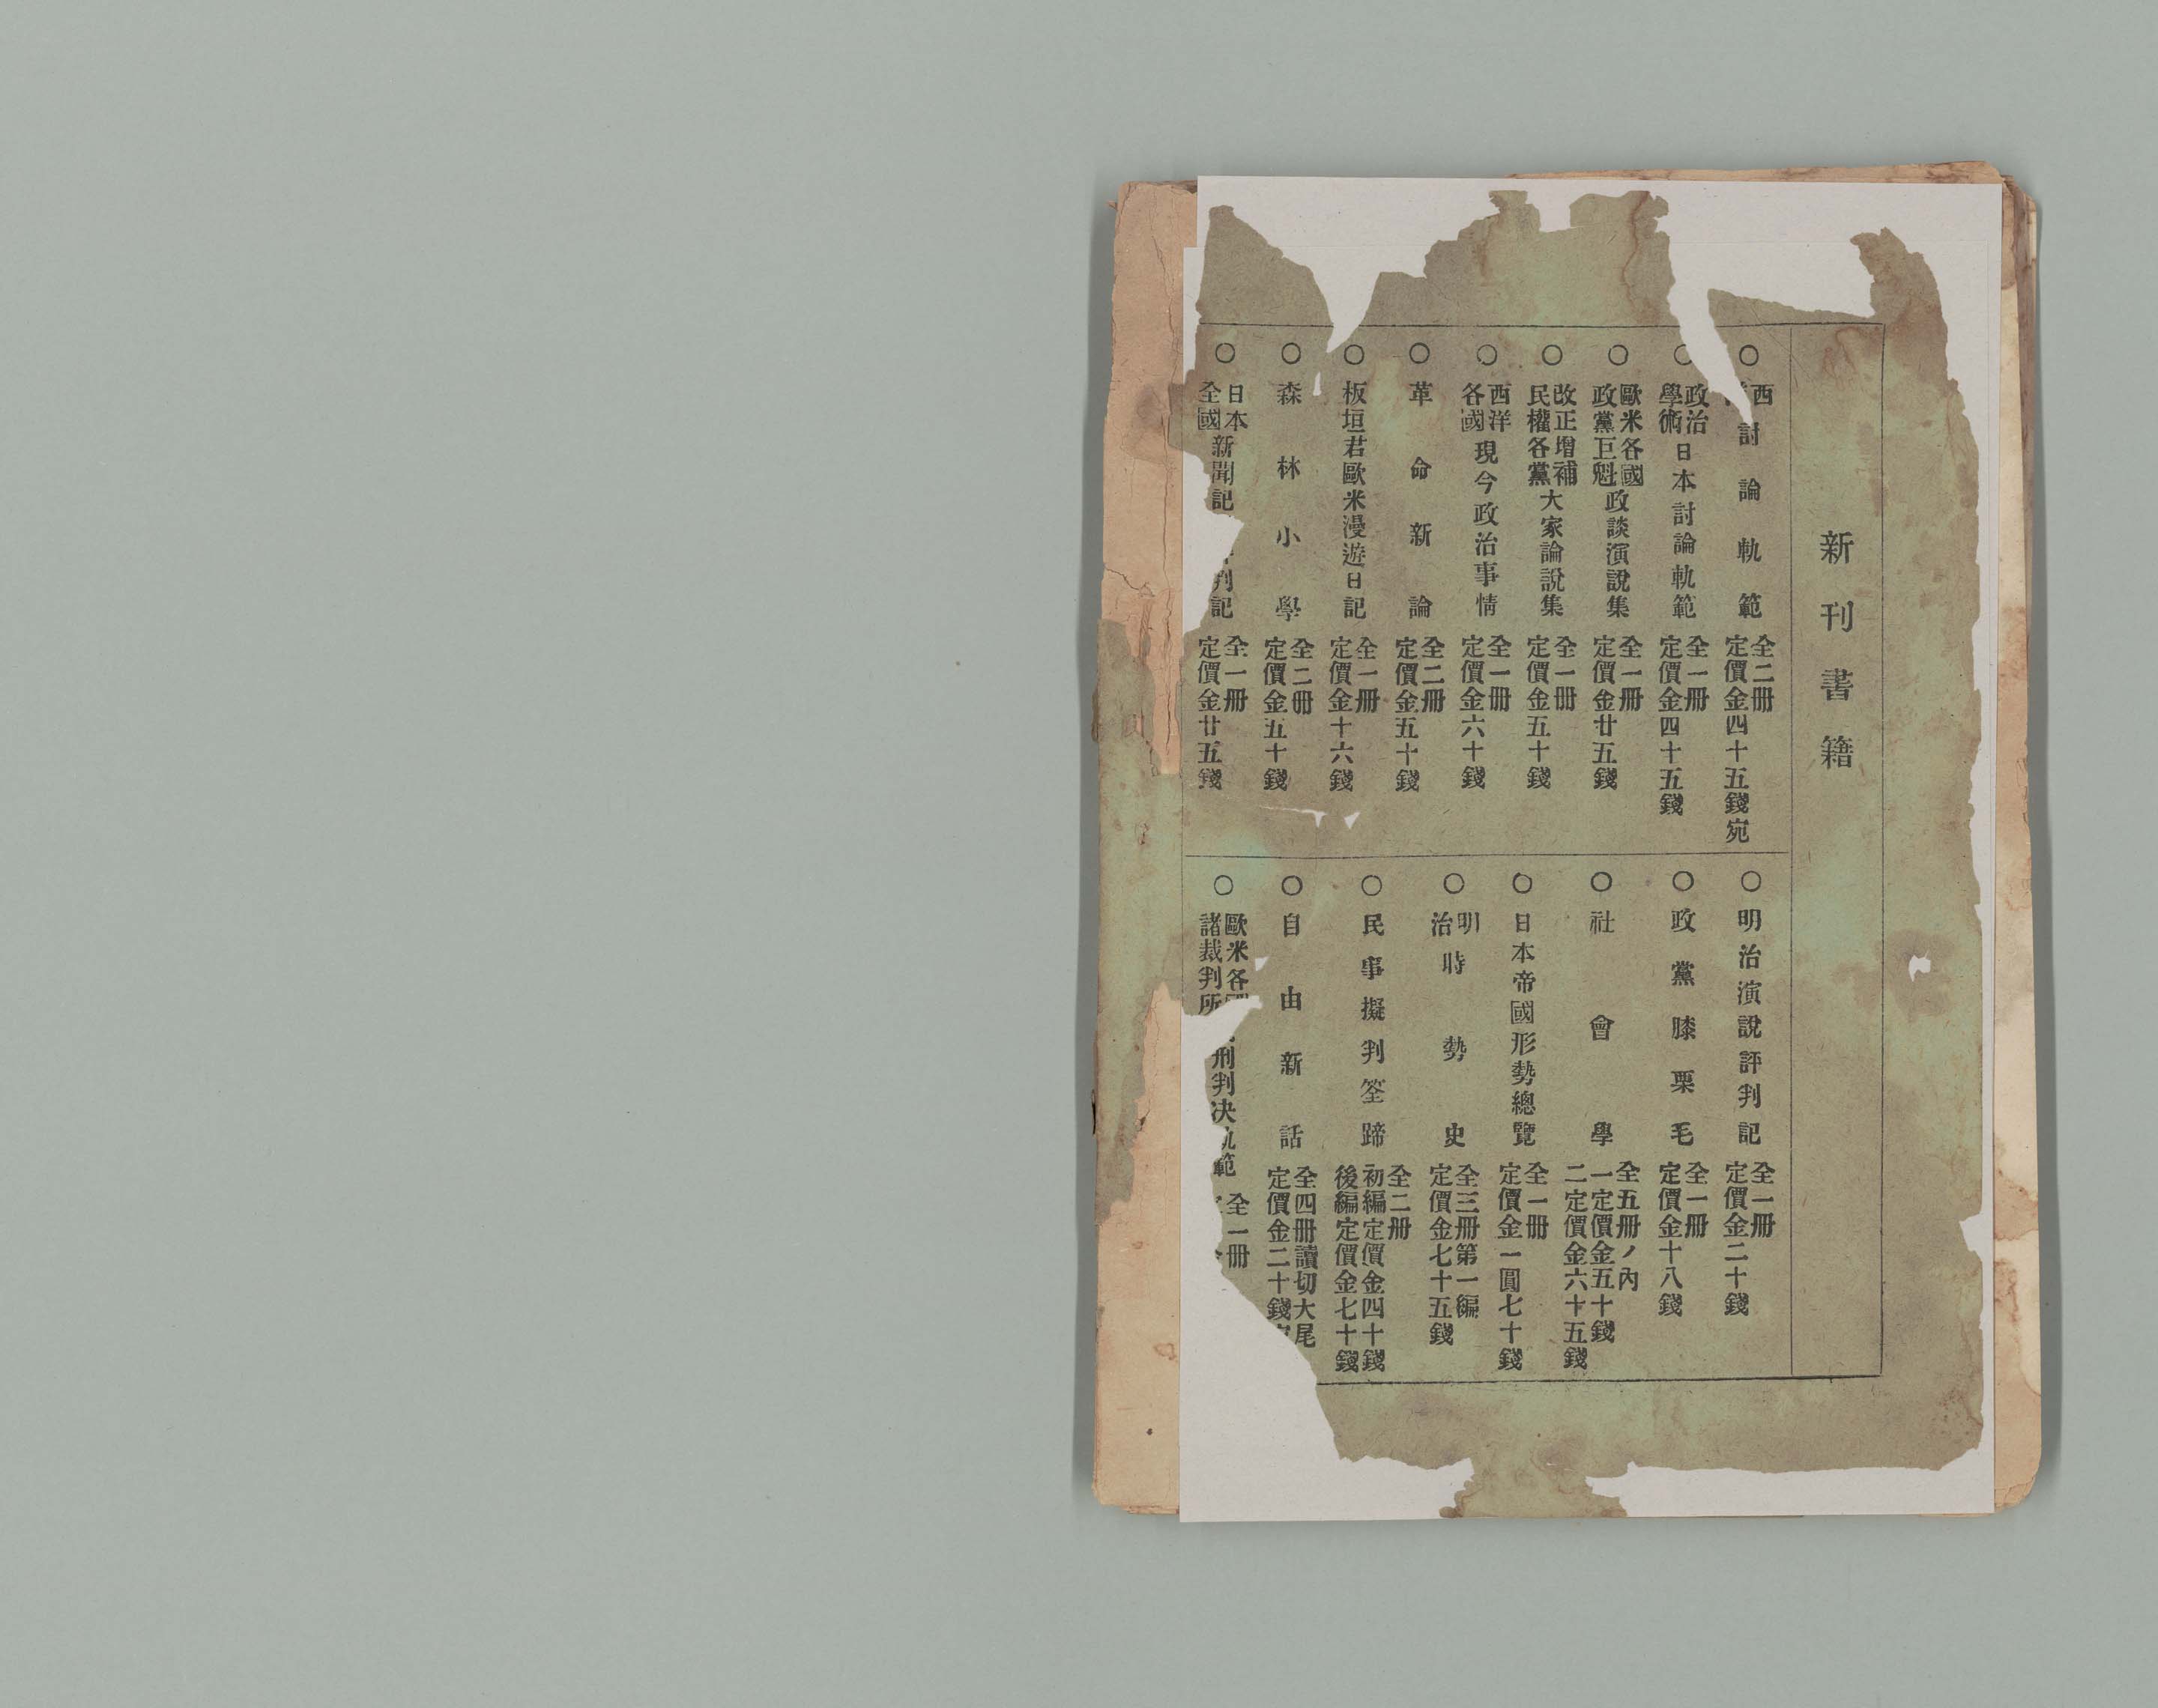 新刊書籍
○西討論軌範 全二册 定價金四十五錢宛
○政治學術日本討論軌範 全一册 定價金四十五錢
○歐米各國政黨巨魁政談演說集 全一册 定價金廿五錢
○改正增補民權各黨大家論說集 全一册 定價金五十錢
○西洋各國現今政治事情 全一册 定價金六十錢
○革命新論 全二册 定價金五十錢
○板垣君歐米漫遊日記 全一册 定價金十六錢
○森林小學 全二册 定價金五十錢
○日本全國新聞記判記 全一册 定價金廿五錢
○明治演說評判記 全一册 定價金二十錢
○政黨膝栗毛 全一册 定價金十八錢
○社會學 全五册ノ內 一定價金五十錢 二定價金六十五錢
○日本帝國形勢總覽 全一册 定價金一圓七十錢
○明治時勢史 全三册第一編 定價金七十五錢
○民事擬判筌蹄 全二册 初編定價金四十錢 後編定價金七十錢
○自由新話 全四册讀切大尾 定價金二十錢
○歐米各國諸裁判所刑判决軌範 全一册